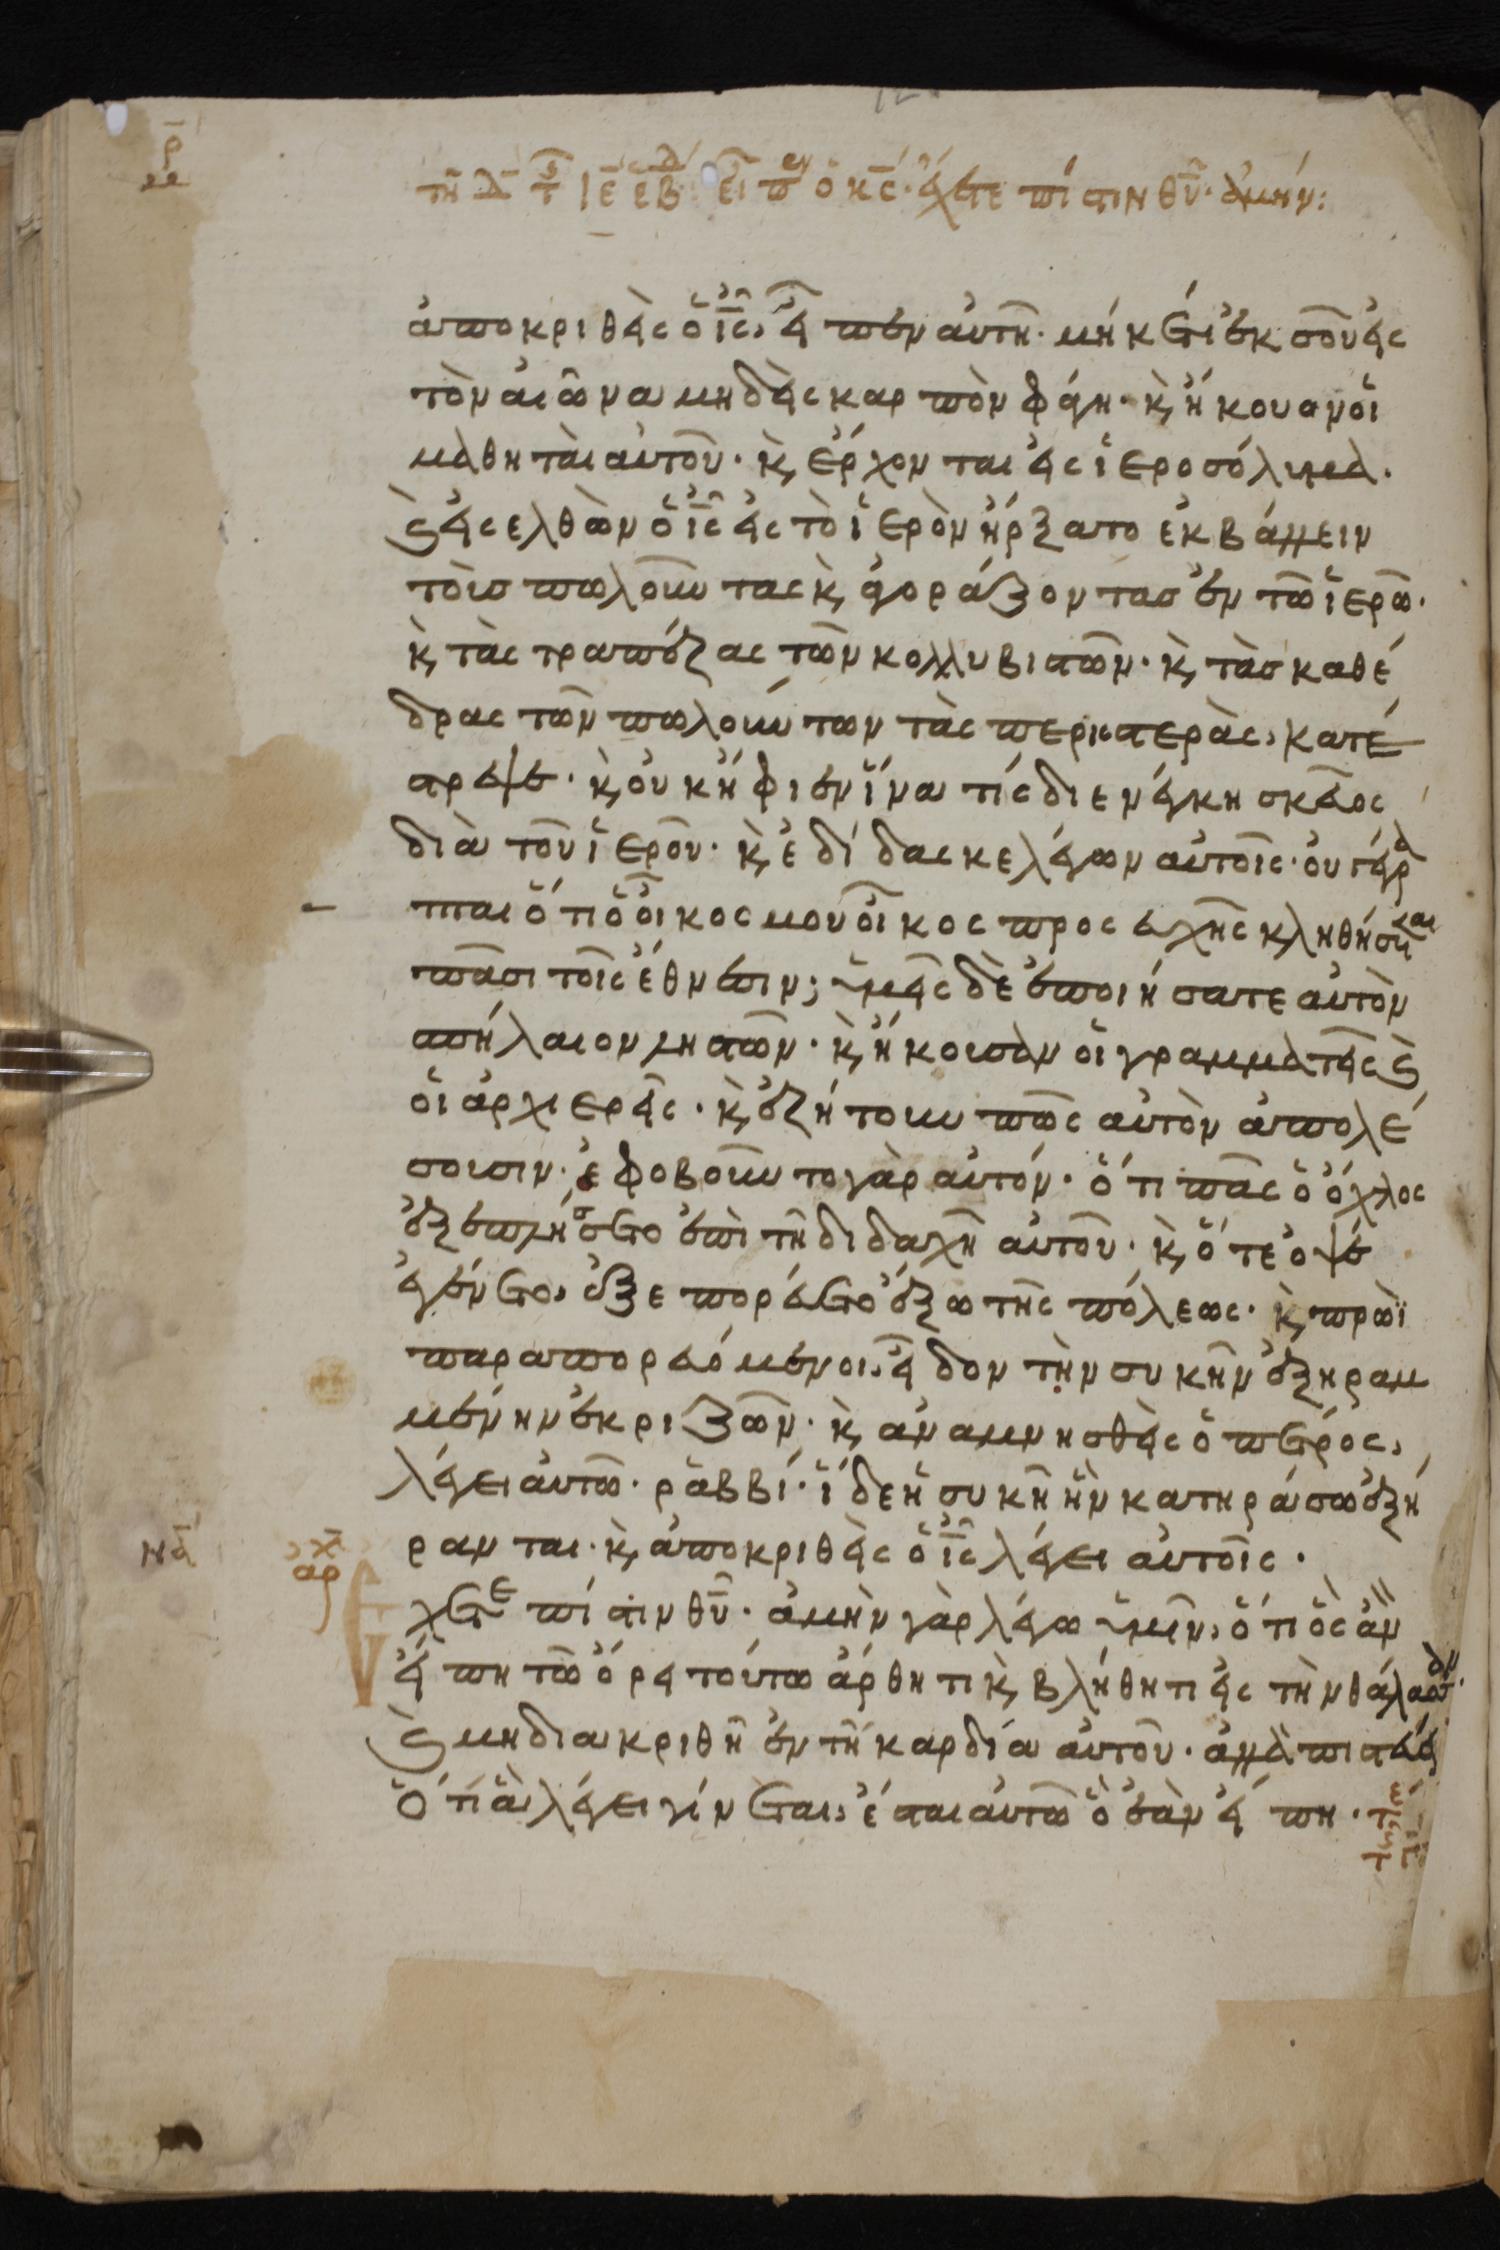 τῆ δ τ ιε εβδ ει π ὁ κς· ἔχετε πίστιν θυ· ἀμήν:
ἀποκριθεὶς ὁ ις, εἶπεν αὐτῆ· μηκέτι ἐκ σοῦ εἰς
τὸν αἰῶνα μηδεὶς καρπὸν φάγη· κ ἤκουον οἱ
μαθηταὶ αὐτοῦ· κ ἔρχονται εἰς ἱεροσόλυμα·
κ εἰσελθὼν ὁ ις εἰς τὸ ἱερὸν ἤρξατο ἐκβάλλειν
τοὺς πωλοῦντας κ ἀγοράζοντας ἐν τῶ ἱερῶ·
κ τὰς τραπέζας τῶν κολλυβιστῶν· κ τὰς καθέ
δρας τῶν πωλούντων τὰς περιστερὰς, κατέ
στρεψε· κ οὐκ ἤφιεν ἵνα τίς διενέγκη σκεῦος
διὰ τοῦ ἱεροῦ· κ ἐδίδασκε λέγων αὐτοῖς· οὐ γέγρα
πται ὅτι ὁ οἶκος μου οἶκος προσευχῆς κληθήσεται
πᾶσι τοῖς ἔθνεσιν; ὑμεῖς δὲ ἐποιήσατε αὐτὸν
σπήλαιον ληστῶν· κ ἤκουσαν οἱ γραμματεῖς κ
οἱ ἀρχιερεῖς· κ ἐζήτουν πῶς αὐτὸν ἀπολέ
σουσιν· ἐφοβοῦντο γὰρ αὐτόν· ὅτι πᾶς ὁ ὄχλος
ἐξεπλήσσετο ἐπὶ τῆ διδαχῆ αὐτοῦ· κ ὅτε ὀψὲ
ἐγένετο, ἐξεπορεύετο ἔξω τῆς πόλεως· κ πρωῒ
παραπορευόμενοι, εἶδον τὴν συκῆν ἐξηραμ
μένην ἐκ ριζῶν· κ ἀναμνησθεὶς ὁ πέτρος,
λέγει αὐτῶ· ραββί· ἴδε ἡ συκῆ ἣν κατηράσω ἐξή
ρανται· κ ἀποκριθεὶς ὁ ις λέγει αὐτοῖς·
ἔχετε πίστιν θυ· ἀμὴν γὰρ λέγω ὑμῖν, ὅτι ὃς ἂν
εἴπη τῶ ὄρει τούτω ἄρθητι κ βλήθητι εἰς τὴν θάλασσαν·
κ μὴ διακριθῆ ἐν τῆ καρδία αὐτοῦ· ἀλλὰ πιστεύσ
ὅτι ἃ λέγει γίνεται, ἔσται αὐτῶ ὃ ἐὰν εἴπη·
να
αρχ